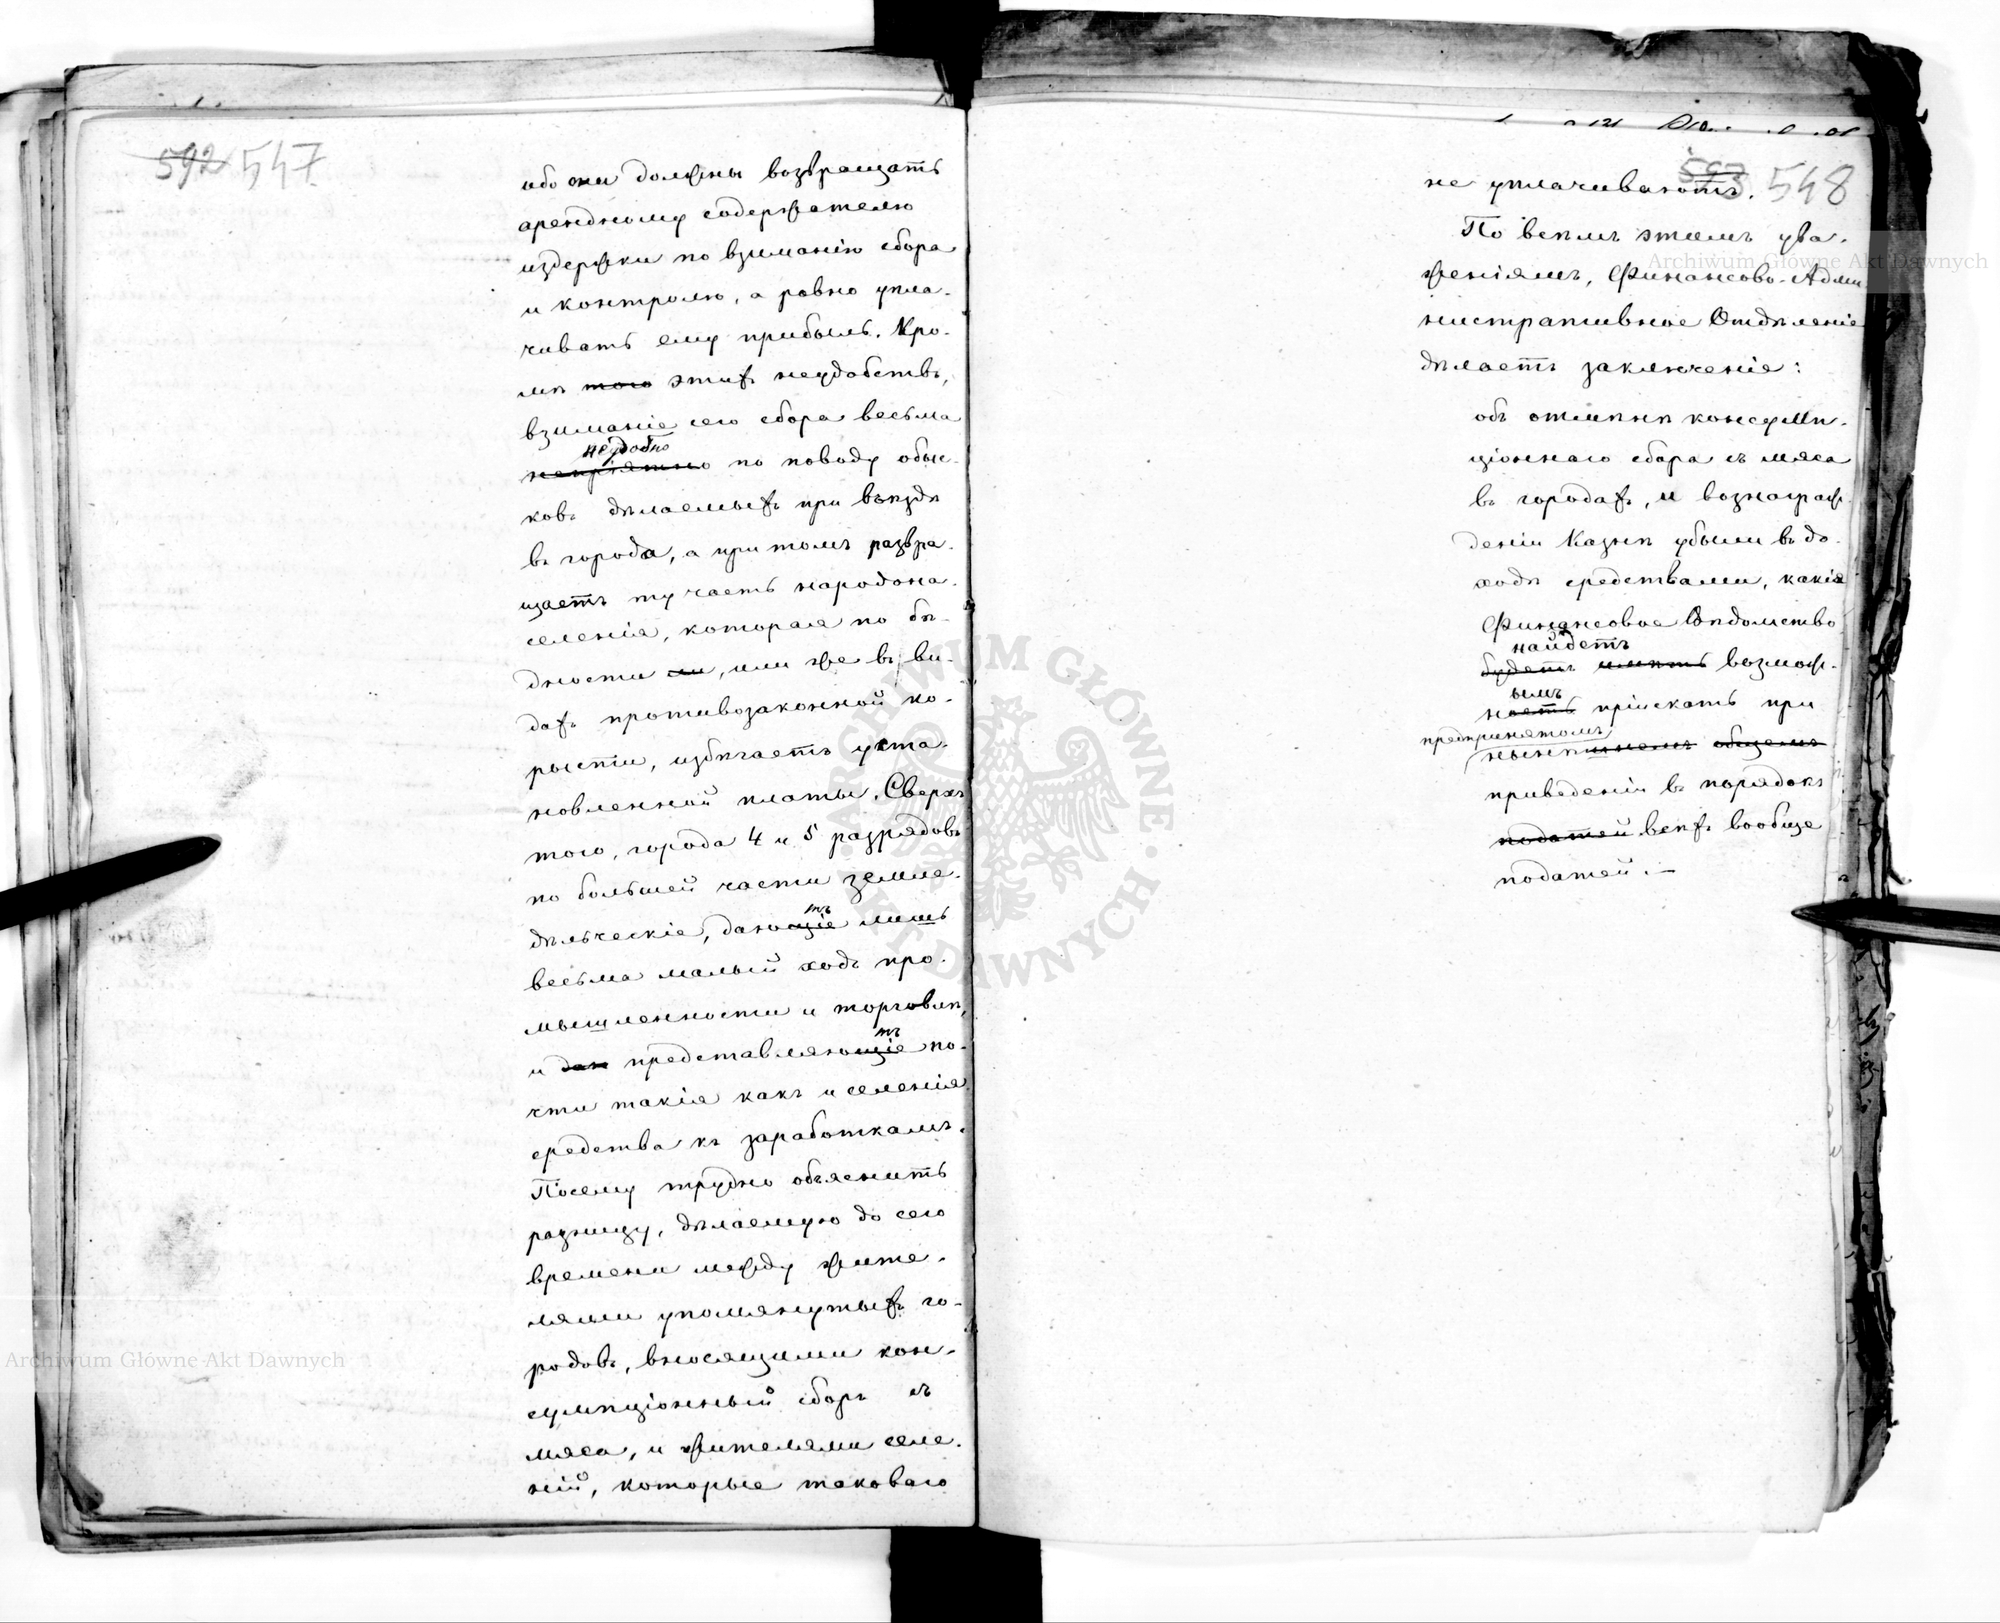 592 547
ибо они должны возвращать
арендному содержателю
издержки по взиманію сбора
и контролю, а равно упла-
чивать ему прибыль. Кро-
мѣ того этихъ неудобствъ,
взиманіе сего сбора весьма
неудобно
непріятно по поводу обыс-
ковъ дѣлаемыхъ при въѣздѣ
въ города, а при томъ развра-
щаетъ ту часть народона-
селенія, которая по бѣ-
дности ли, или же въ ви-
дахъ противозаконной ко-
рысти, избѣгаетъ уста-
новленной платы. Сверхъ
того, города 4 и 5 разрядовъ
по большей части земле-
дѣльческіе, дающіе лишь
тъ
весьма малый ходъ про-
мышленности и торговлѣ,
и даю представляющіе по-
тъ
чти такія какъ и селенія
средства къ заработкамъ.
Посему трудно объяснить
разницу, дѣлаемую до сего
времени между жите-
лями упомянутыхъ го-
родовъ, вносящими кон-
сумпціонный сборъ съ
мяса, и жителями селе-
ній, которые таковаго
593 548
не уплачиваютъ.
По всѣмъ этимъ ува-
женіямъ, Финансово-Адми
нистративное Отдѣленіе
дѣлаетъ заключеніе:
объ отмѣнѣ консумп-
ціоннаго сбора съ мяса
въ городахъ, и вознаграж-
деніи Казнѣ убыли въ до-
ходѣ средствами, какія
Финансовое Вѣдомство
найдетъ
будетъ имѣть возмож-
нымъ
ность пріискать при
предпринятомъ
нынѣшнемъ общемъ
приведеніи въ порядокъ
податей всѣхъ вообще
податей.—
Archiwum Główne Akt Dawnych
Archiwum Główne Akt Dawnych
ARCHIWUM GŁÓWNE AKT DAWNYCH